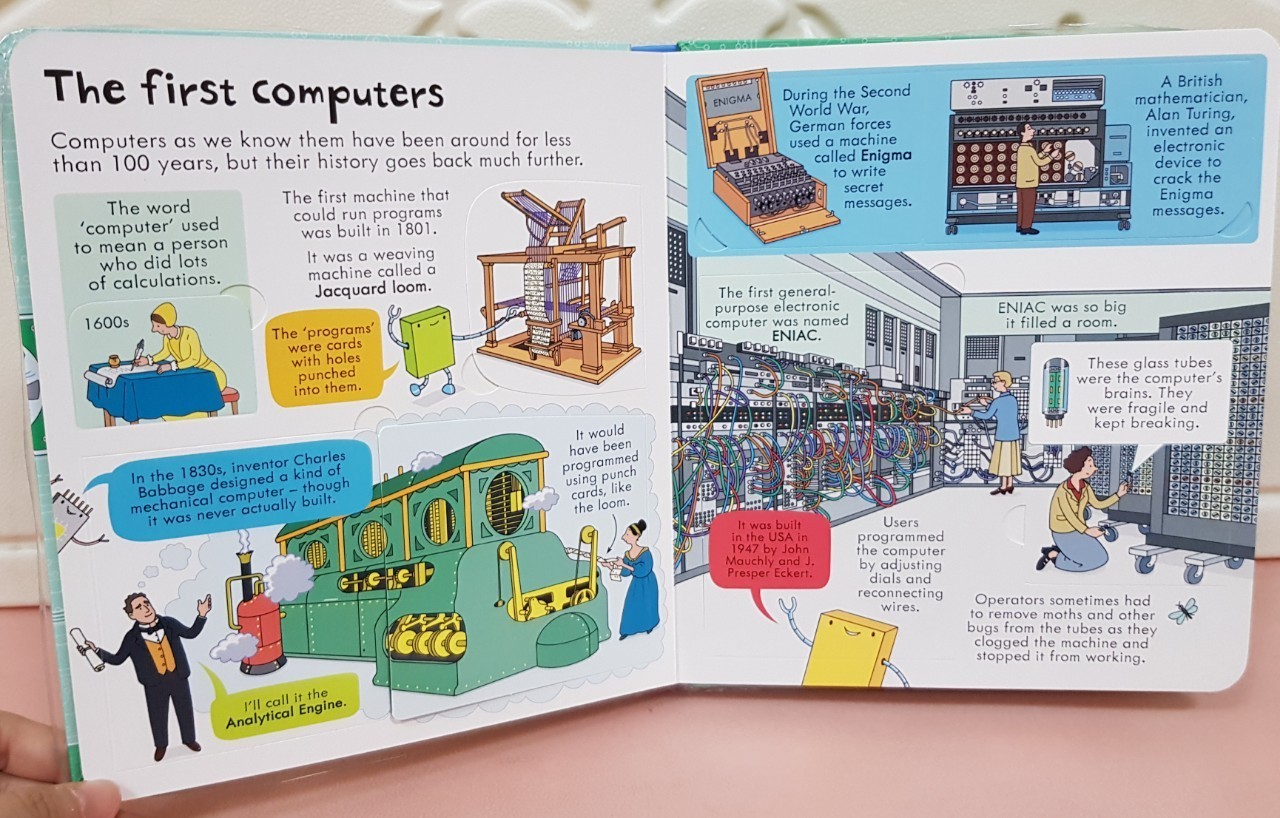 The first computers
Computers as we know them have been around for less
than 100 years, but their history goes back much further.
The word
‘computer’ used
to mean a person
who did lots
of calculations.
1600s
The first machine that
could run programs
was built in 1801.
It was a weaving
machine called a
Jacquard loom.
The ‘programs’
were cards
with holes
punched
into them.
In the 1830s, inventor Charles
Babbage designed a kind of
mechanical computer – though
it was never actually built.
It would
have been
programmed
using punch
cards, like
the loom.
I’ll call it the
Analytical Engine.
ENIGMA
During the Second
World War,
German forces
used a machine
called Enigma
to write
secret
messages.
A British
mathematician,
Alan Turing,
invented an
electronic
device to
crack the
Enigma
messages.
The first general-
purpose electronic
computer was named
ENIAC.
ENIAC was so big
it filled a room.
These glass tubes
were the computer’s
brains. They
were fragile and
kept breaking.
It was built
in the USA in
1947 by John
Mauchly and J.
Presper Eckert.
Users
programmed
the computer
by adjusting
dials and
reconnecting
wires.
Operators sometimes had
to remove moths and other
bugs from the tubes as they
clogged the machine and
stopped it from working.